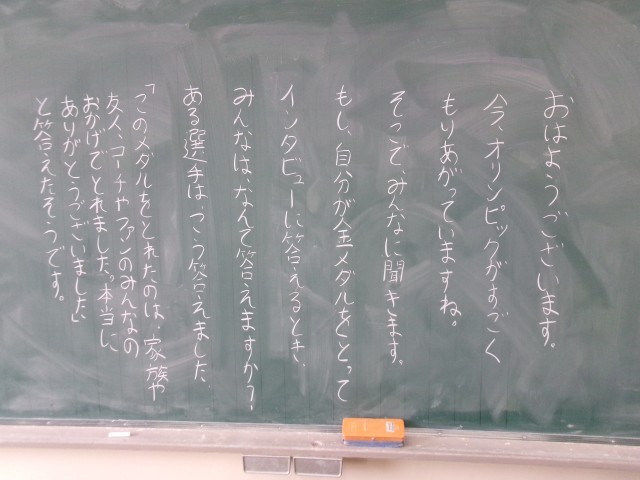 おはようございます。
今、オリンピックがすごく
もりあがっていますね。
そこで、みんなに聞きます。
もし、自分が金メダルをとって
インタビューに答えるとき、
みんなは、なんて答えますか?
ある選手は、こう答えました。
「このメダルをとれたのは、家族や
友人、コーチやファンのみんなの
おかげでとれました。本当に、
ありがとうございました」
と答えたそうです。